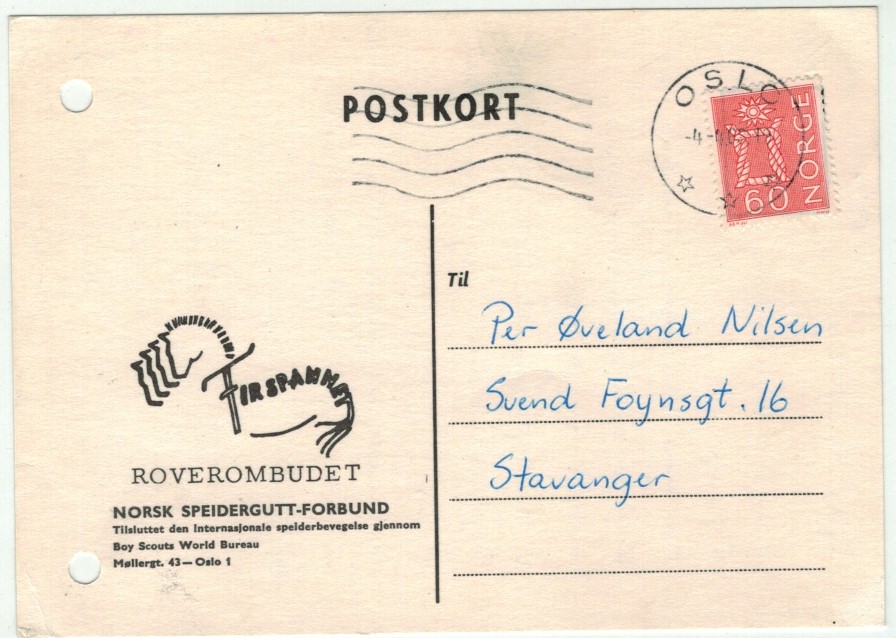 POSTKORT
OSLO
60 NORGE
Til
Per Øveland Nilsen
Svend Foynsgt. 16
Stavanger
FIRSPANNET
ROVEROMBUDET
NORSK SPEIDERGUTT-FORBUND
Tilsluttet den Internasjonale speiderbevegelse gjennom
Boy Scouts World Bureau
Møllergt. 43—Oslo 1